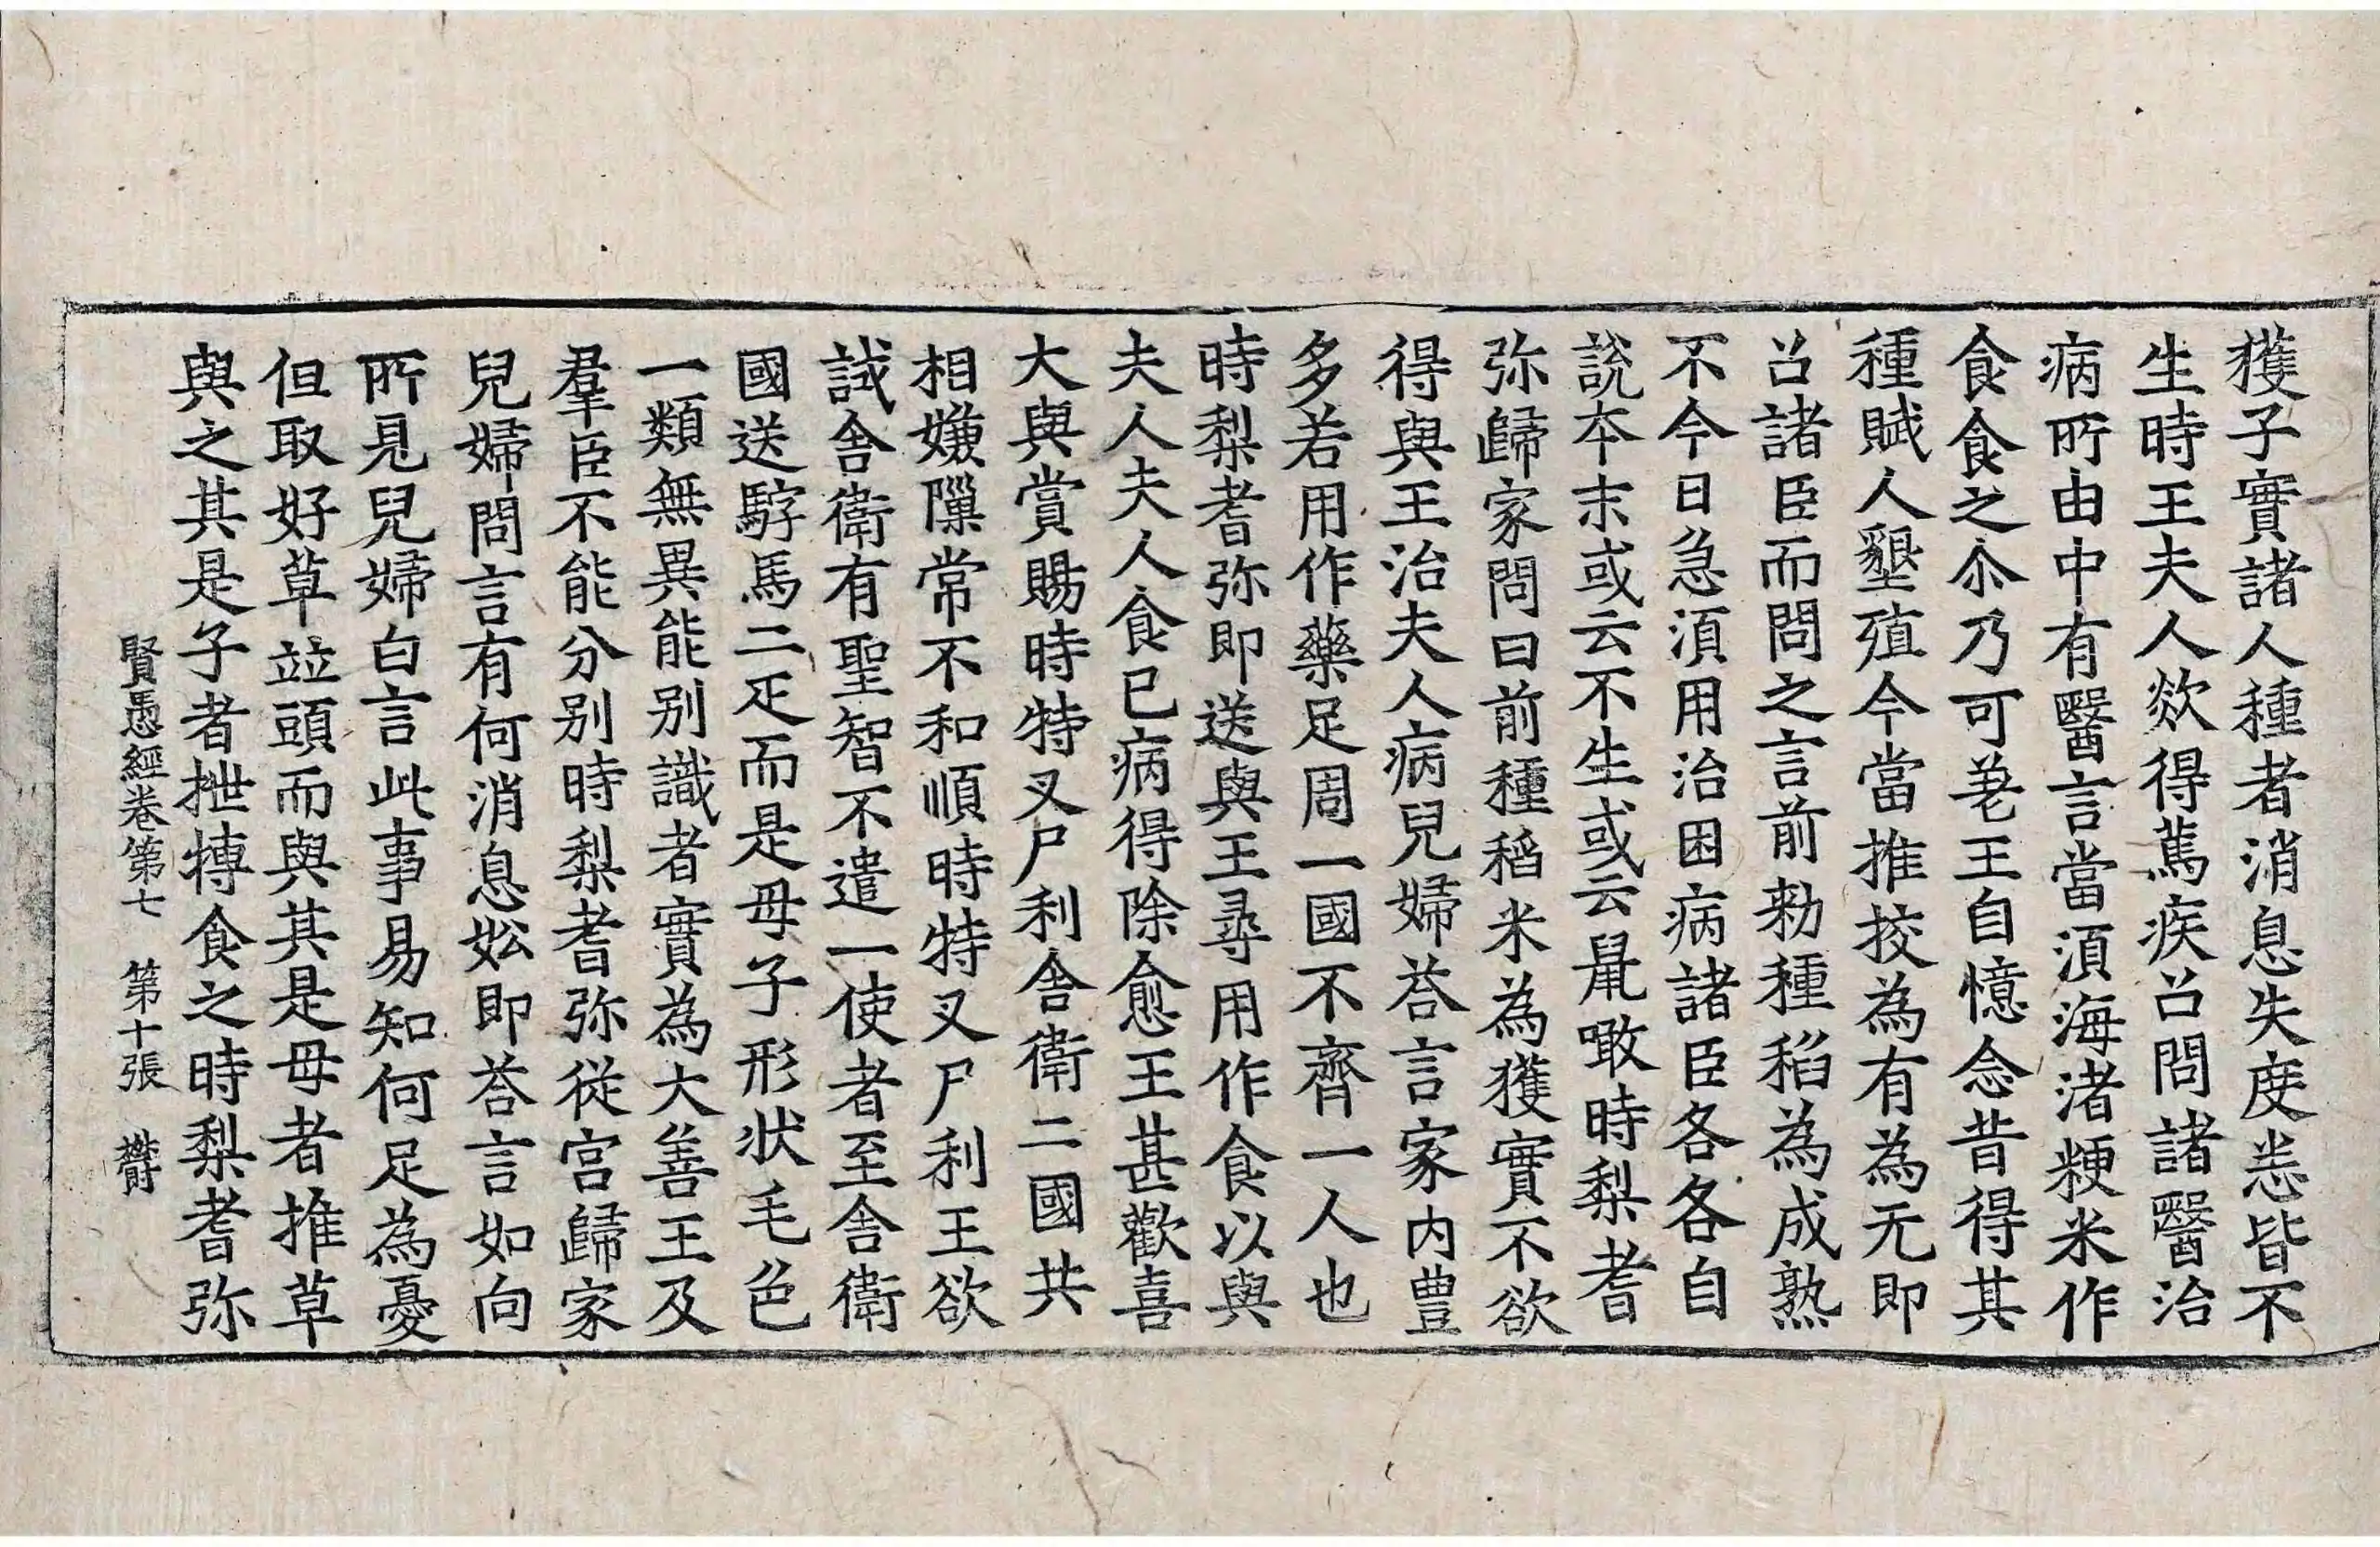 獲子實諸人種者消息失度悉皆不
生時王夫人欻得篤疾召問諸醫治
病所由中有醫言當湏海渚粳米作
食食之尒乃可差王自憶念昔得其
種賦人墾殖今當推挍為有為无即
召諸臣而問之言前勑種稻為成熟
不今日急湏用治困病諸臣各各自
說本末或云不生或云鼠噉時梨耆
弥歸家問曰前種稻米為獲實不欲
得與王治夫人病兒婦荅言家内豊
多若用作藥足周一國不齊一人也
時梨耆弥即送與王尋用作食以與
夫人夫人食已病得除愈王甚歡喜
大與賞賜時特叉尸利舍衛二國共
相嫌隟常不和順時特叉尸利王欲
試舍衛有聖智不遣一使者至舍衛
國送騲馬二疋而是母子形狀毛色
一類無異能別識者實為大善王及
羣臣不能分別時梨耆弥從宮歸家
兒婦問言有何消息妐即荅言如向
所見兒婦白言此事易知何足為憂
但取好草並頭而與其是母者推草
與之其是子者抴搏食之時梨耆弥
賢愚經卷第七　第十張